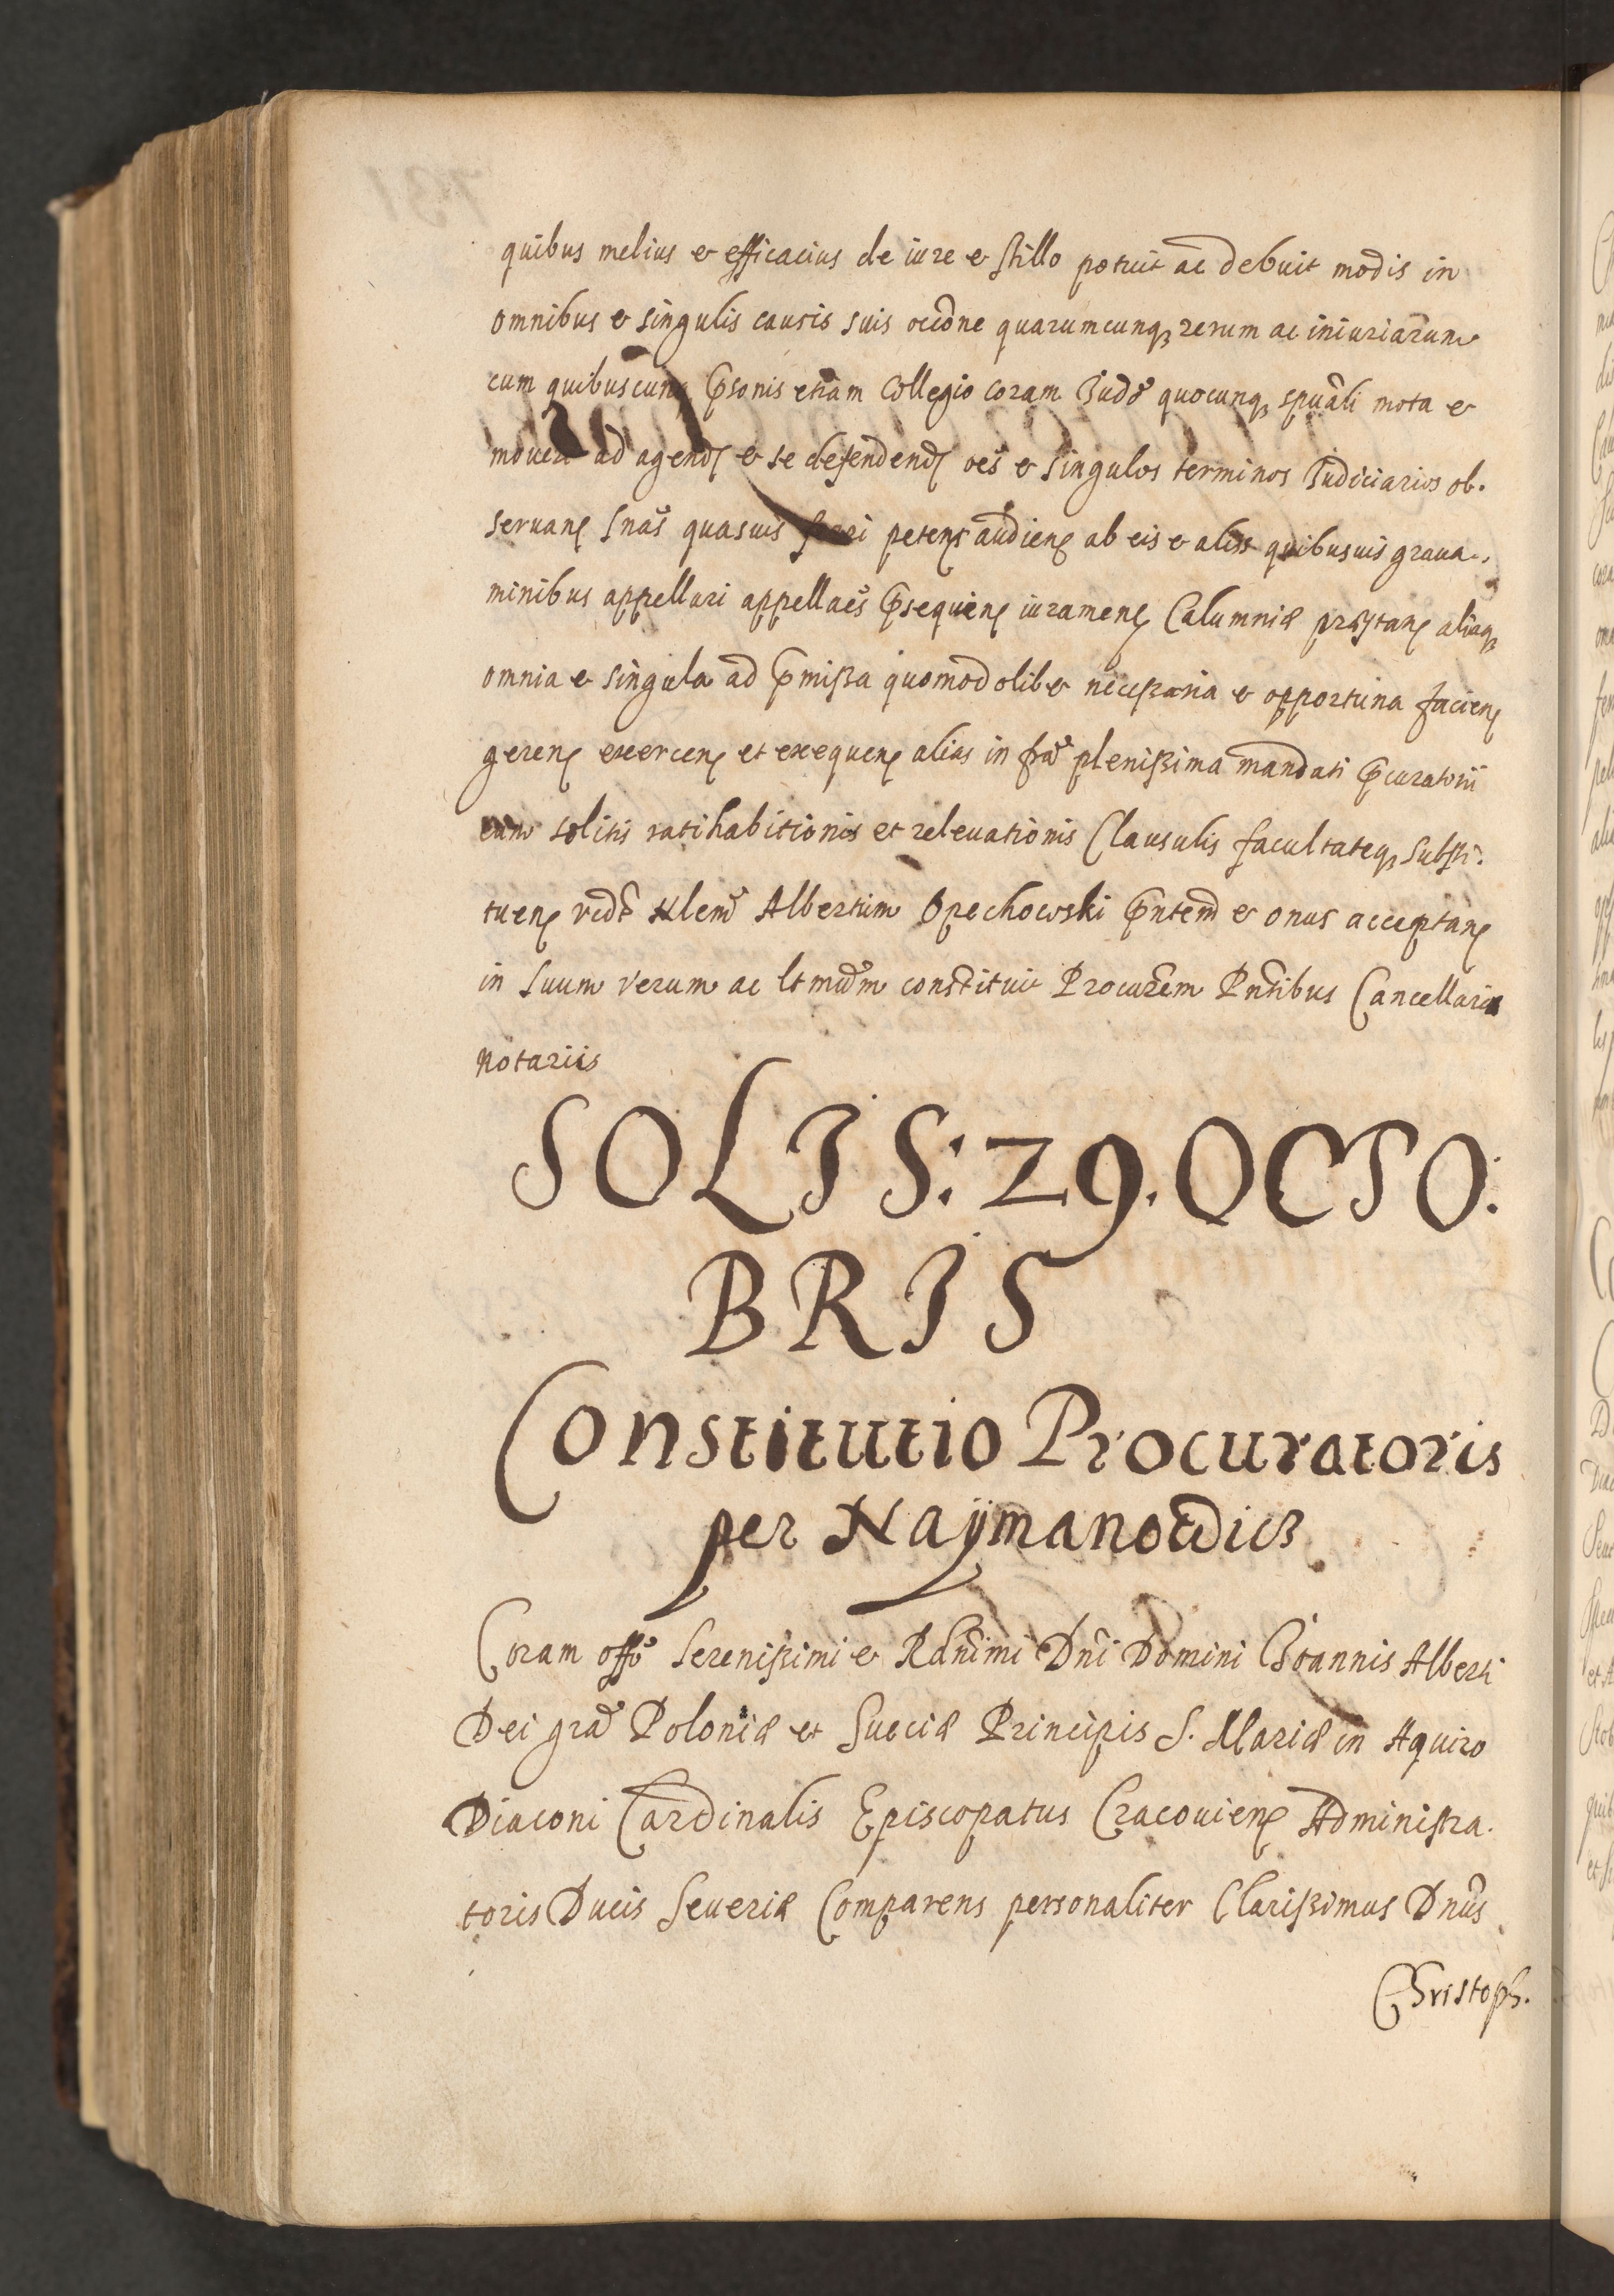 quibus melius et efficacius de iure et stillo potuit ac debuit modis in
omnibus et singulis causis suis occōne quarumcunq₃ rerum ac iniuriarum
cum quibuscunq₃ ꝑsonis etiam Collegio coram Judē quocunq₃ spūali mota et
mouen ad agendꝭ et se defendendꝭ oēs et singulos terminos Judiciarios ob.
seruanꝭ snās quasuis ferri petenꝭ audienꝭ ab eis et aliis quibusuis graua.
minibus appellari appellaēs ꝓsequienꝭ iuramenꝭ Calumniæ præstanꝭ aliaq₃
omnia et singula ad p̄missa quomodolibet necessaria et opportuna facienꝭ
gerenꝭ exercenꝭ et exequenꝭ alias in frā plenissima mandati ꝓcuratorii
cum solitis ratihabitionis et relevationis Clausulis facultateq₃ substi.
tuenꝭ Albertum Opechowski p̄ntem et onus acceptanꝭ
in suum verum ac ltmūm constituit Procurēm Pn̄tibus Cancellariæ
Notariis
SOLIS: 29. OCTO:
BRIS
Constitutio Procuratoris
per Naÿmanowicz
Coram offō Serenissimi et Rdn̄imi Dn̄i Domini Joannis Alberti
Dei grā Poloniæ et Sueciæ Principis S. Mariæ in Aquiro
Diaconi Cardinalis Episcopatus Cracouienꝭ Administra.
toris Ducis Seueriæ Comparens personaliter Clarissimus Dn̄us
Christoph.